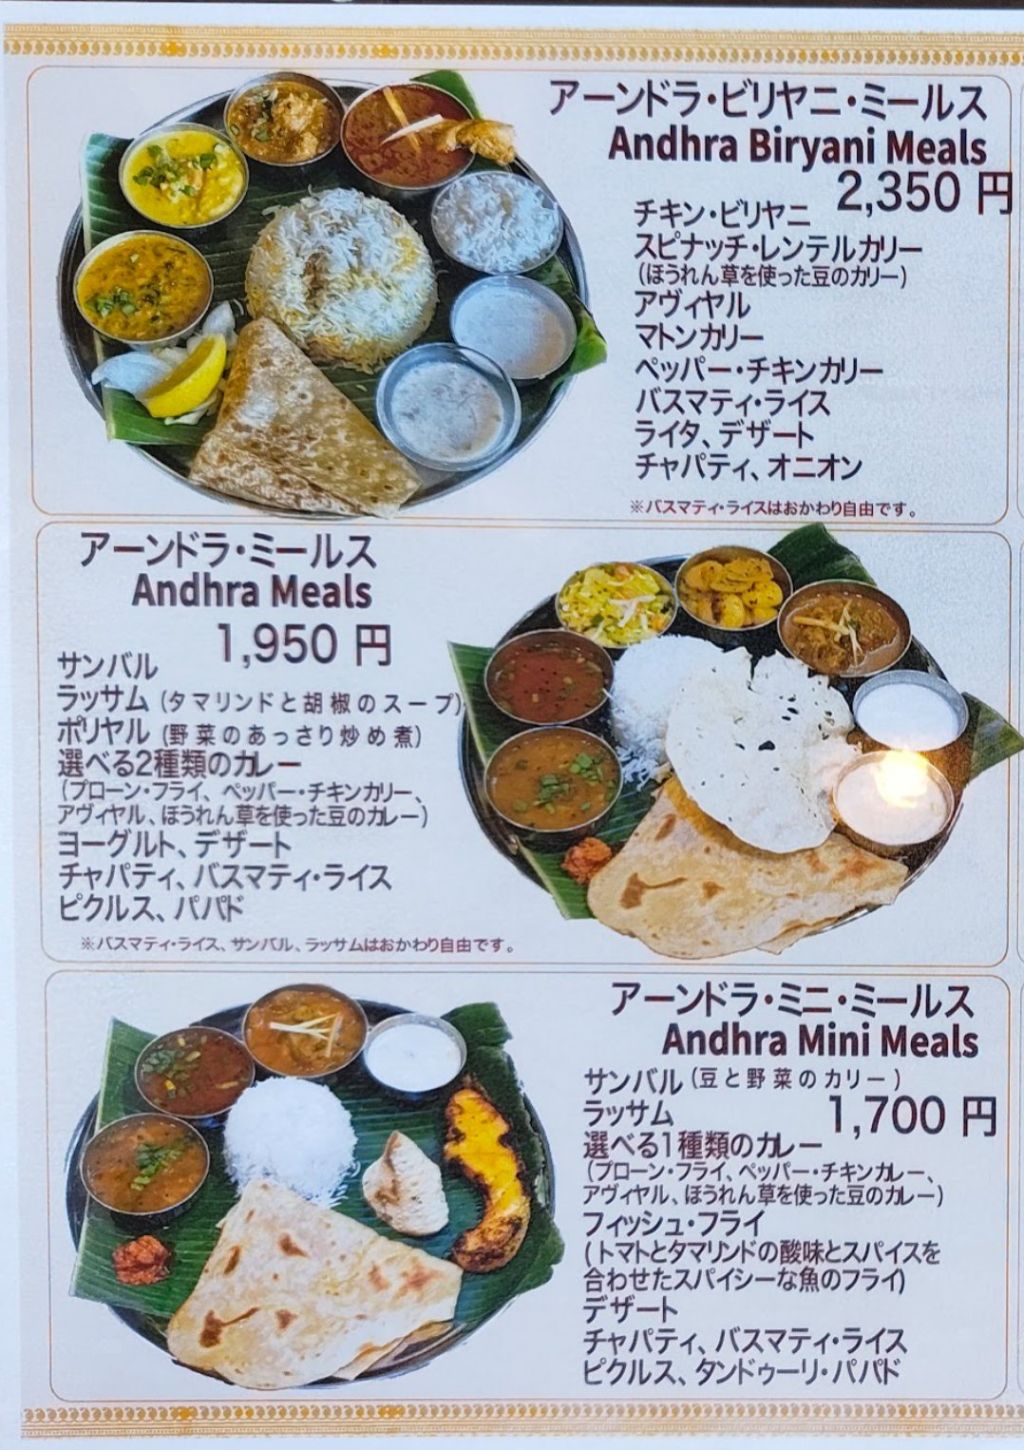 アーンドラ・ビリヤニ・ミールス
Andhra Biryani Meals
2,350 円
チキン・ビリヤニ
スピナッチ・レンテルカリー
(ほうれん草を使った豆のカリー)
アヴィヤル
マトンカリー
ペッパー・チキンカリー
バスマティ・ライス
ライタ、デザート
チャパティ、オニオン
※バスマティ・ライスはおかわり自由です。
アーンドラ・ミールス
Andhra Meals
1,950 円
サンバル
ラッサム (タマリンドと胡椒のスープ)
ポリヤル (野菜のあっさり炒め煮)
選べる2種類のカレー
(プローン・フライ、ペッパー・チキンカリー、
アヴィヤル、ほうれん草を使った豆のカレー)
ヨーグルト、デザート
チャパティ、バスマティ・ライス
ピクルス、パパド
※バスマティ・ライス、サンバル、ラッサムはおかわり自由です。
アーンドラ・ミニ・ミールス
Andhra Mini Meals
サンバル (豆と野菜のカリー)
ラッサム
1,700 円
選べる1種類のカレー
(プローン・フライ、ペッパー・チキンカレー、
アヴィヤル、ほうれん草を使った豆のカレー)
フィッシュ・フライ
(トマトとタマリンドの酸味とスパイスを
合わせたスパイシーな魚のフライ)
デザート
チャパティ、バスマティ・ライス
ピクルス、タンドゥーリ・パパド